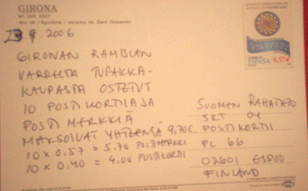 GIRONA
23 9 2006
GIRONAN RAMBLAN
VARRELTA TUPAKKA-
KAUPASTA OSTETUT
10 POSTIKORTTIA JA
POSTIMERKKIÄ
MAKSOIVAT YHTEENSÄ 9,70€
10 x 0.57 = 5.70 POSTIMERKKI
10 x 0.40 = 4.00 POSTIKORTTI
ESPAÑA
0,57€
SUOMEN RAHATIETO
POSTIKORTTI
PL 66
02601 ESPOO
FINLAND